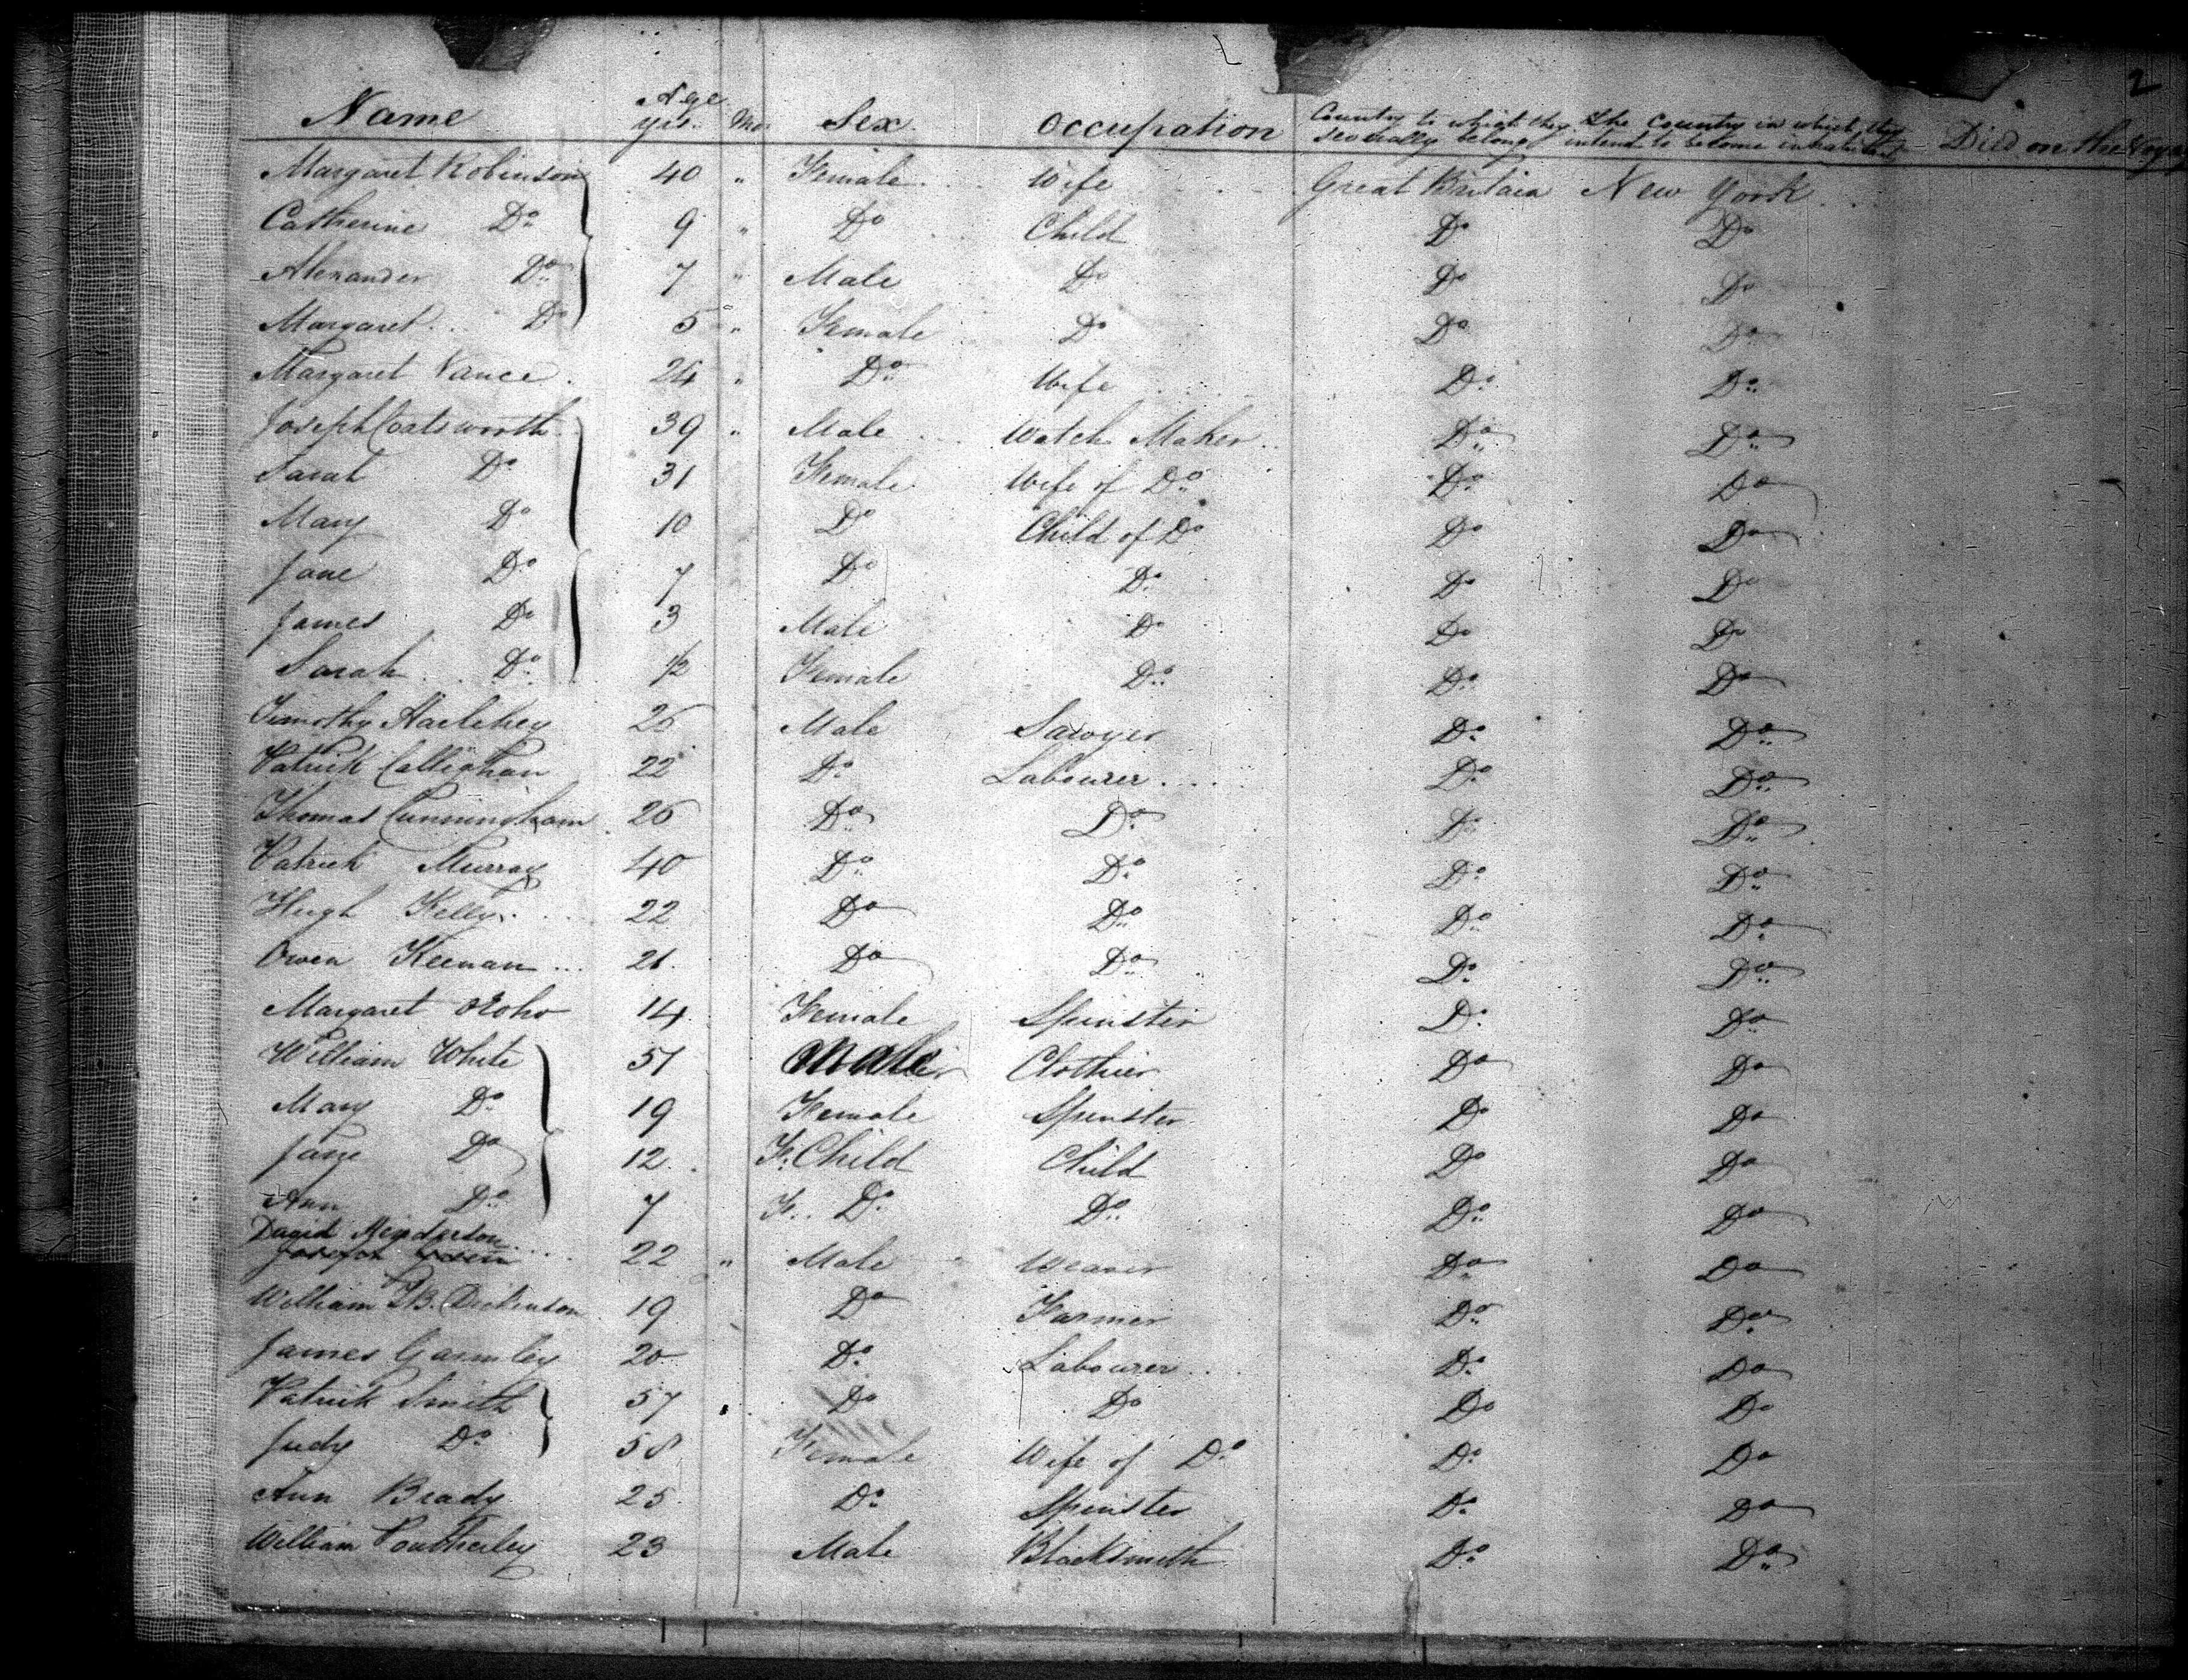 2
Name Age yrs. Mos Sex. Occupation Country to which they severally belong The Country in which they intend to become inhabitants Died on the Voyage
Margaret Robinson 40 " Female Wife Great Britain New York
Catherine Do 9 " Do Child Do Do
Alexander Do 7 " Male Do Do Do
Margaret Do 5 " Female Do Do Do
Margaret Vance 24 " Do Wife Do Do
Joseph Coatsworth 39 " Male Watch Maker Do Do
Sarah Do 31 Female Wife of Do Do Do
Mary Do 10 Do Child of Do Do Do
Jane Do 7 Do Do Do Do
James Do 3 Male Do Do Do
Sarah Do 1/2 Female Do Do Do
Timothy 26 Male Sawyer Do Do
Patrick Callighan 22 Do Labourer Do Do
Thomas Cunningham 26 Do Do Do Do
Patrick Murray 40 Do Do Do Do
Hugh Kelly 22 Do Do Do Do
Owen Keenan 21 Do Do Do Do
Margaret 14 Female Spinster Do Do
William White 51 Male Clothier Do Do
Mary Do 19 Female Spinster Do Do
Jane Do 12 F. Child Child Do Do
Ann Do 7 F. Do Do Do Do
David Henderson
22 " Male Weaver Do Do
William B. Dickinson 19 Do Farmer Do Do
James Gormley 20 Do Labourer Do Do
Patrick Smith 57 Do Do Do Do
Judy Do 58 Female Wife of Do Do Do
Ann Brady 25 Do Spinster Do Do
William 23 Male Blacksmith Do Do